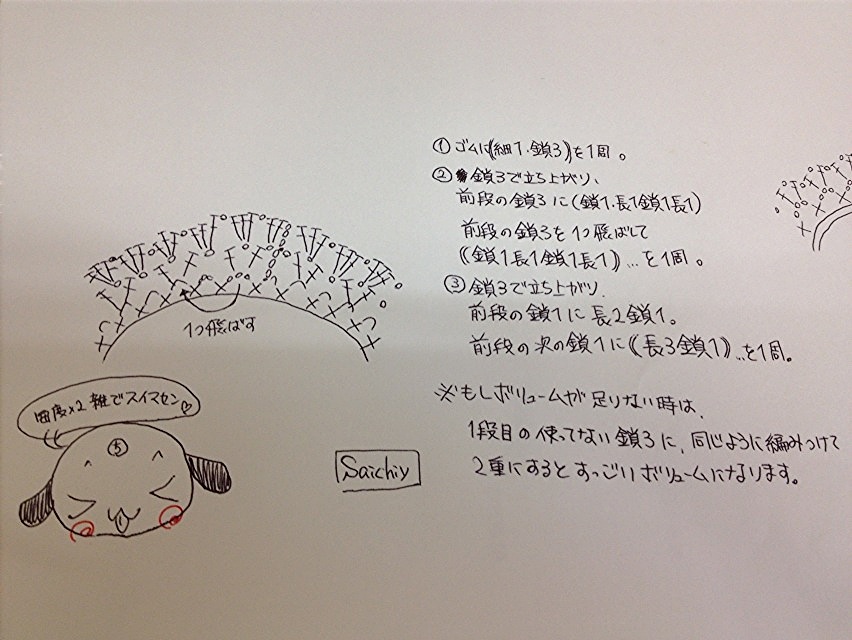 ① ゴムに《細1.鎖3》を1周。
② 鎖3で立ち上がり、
前段の鎖3に(鎖1.長1鎖1長1)
前段の鎖3を1つ飛ばして
《鎖1長1鎖1長1》…を1周。
③ 鎖3で立ち上がり、
前段の鎖1に長2鎖1。
前段の次の鎖1に《長3鎖1》…を1周。
※もしボリュームが足りない時は、
1段目の使ってない鎖3に、同じように編みつけて
2重にするとすっごいボリュームになります。
1つ飛ばす
毎度×2 雑でスイマセン♡
⑤
Saichiy